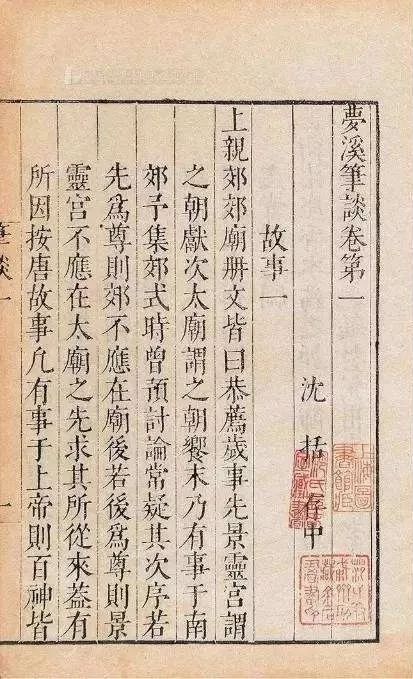 夢溪筆談卷第一
沈括存中
故事一
上親郊郊廟冊文皆曰恭薦歲事先景靈宮謂
之朝獻次太廟謂之朝饗末乃有事于南
郊予集郊式時曾預討論常疑其次序若
先爲尊則郊不應在廟後若後爲尊則景
靈宮不應在太廟之先求其所從來蓋有
所因按唐故事凢有事于上帝則百神皆
筆談一
一
上海圖
書館藏